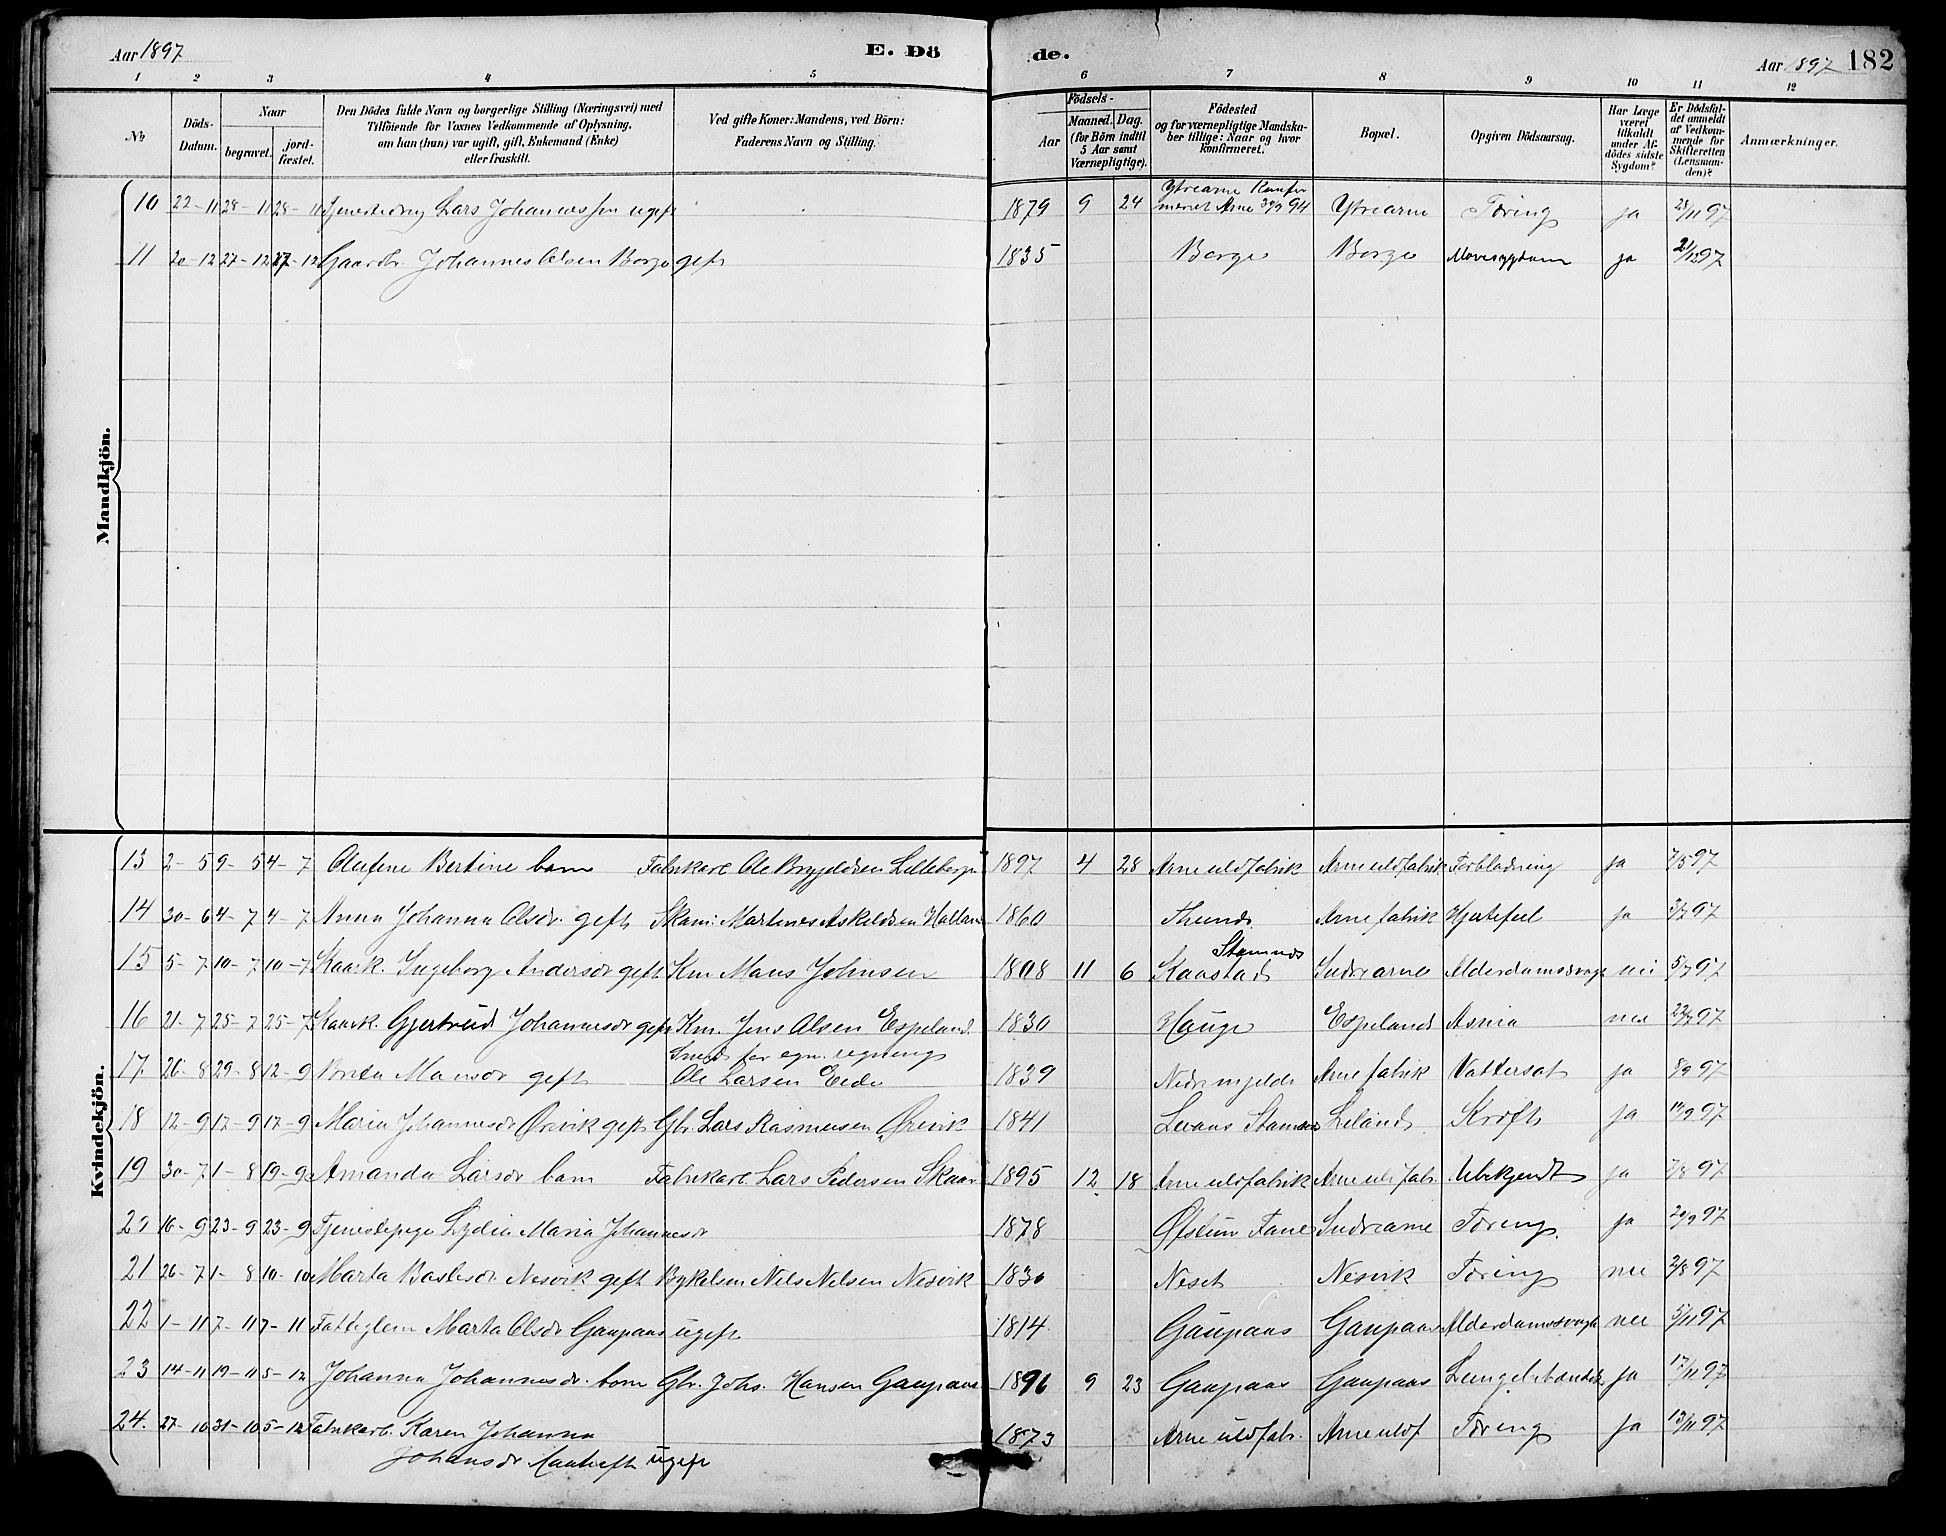 Aar 1897 E. Dö
de. Aar 1897 182
1 2 3 4 5 6 7 8 9 10 11 12
№
Döds-Datum.
Naar
begravet. jord-fæstet.
Den Dödes fulde Navn og borgerlige Stilling (Næringsvei) med
Tilföiende for Voxnes Vedkommende af Oplysning,
om han (hun) var ugift, gift, Enkemand (Enke)
eller fraskilt.
Ved gifte Koner: Mandens, ved Börn:
Faderens Navn og Stilling.
Födsels-
Aar Maaned. Dag.
(for Börn indtil
5 Aar samt
Værnepligtige).
Födested
og for værnepligtige Mandska-
ber tillige: Naar og hvor
konfirmeret.
Bopæl.
Opgiven Dödsaarsag.
Har Læge
været
tilkaldt
under Af-
dödes sidste
Sygdom?
Er Dödsfal-
det anmeldt
af Vedkom-
mende for
Skifteretten
(Lensman-
den)?
Anmærkninger.
Mandkjön.
10 22-11 28-11 28-11 Tjenestedreng Lars Johannessen ugift 1879 9 24 Ytrearne Konfirmeret Arne 30/9 94 Ytrearne Tæring ja 28/11 97
11 20-12 27-12 27-12 Gaardbr. Johannes Olsen Borge gift 1835 Borge Borge Mavesygdom ja 21/12 97
Kvindekjön.
13 2-5 9-5 4-7 Olufine Bertine barn Fabrikarb. Ole Brynildsen Lilleberge 1897 4 28 Arne uldfabrik Arne uldfabrik Forblødning ja 7/5 97
14 30-6 4-7 4-7 Anna Johanna Olsdr. gift Martines Askeldsen 1860 Arne fabrik Hjertefeil ja 3/7 97
15 5-7 10-7 10-7 Kaark. Ingeborg Andersdr gift Km Mons Johnsen 1808 11 6 Kaastad Stamnes Indrearne Alderdomssvagh nei 5/7 97
16 21-7 25-7 25-7 Kaark. Gjertrud Johannesdr gift Km. Jens Olsen Espeland 1830 Hauge Espeland Asma nei 22/7 97
17 26-8 29-8 12-9 Brita Monsdr gift Smed for egn. regning
Ole Larsen Eide 1839 Arne fabrik Vattersot ja 8/9 97
18 12-9 17-9 17-9 Maria Johannesdr Ørevik gift Gbr. Lars Rasmussen Ørevik 1841 Leland Kræft ja 14/9 97
19 30-7 1-8 19-9 Amanda Larsdr barn Fabrikarb. Lars Pedersen Skaar 1895 12 18 Arne uldfabrik Arne uldfabr. Ubekjendt ja 7/8 97
20 16-9 23-9 23-9 Tjenestepige Lydia Maria Johannesdr 1878 Øfstun Fane Indrearne Tæring. ja 20/9 97
21 26-7 1-8 10-10 Marta Nesvik gift Nils Nilsen Nesvik 1830 Neset Nesvik Tæring nei 2/8 97
22 1-11 7-11 7-11 Fattiglem Marta Olsdr Gaupaas ugift 1814 Gaupaas Gaupaas Alderdomssvagh nei 5/11 97
23 14-11 19-11 5-12 Johanna Johannesdr. barn Gbr. Johs. Hansen Gaupaas 1896 9 23 Gaupaas Gaupaas Lungebetændelse ja 17/11 97
24. 27-10 31-10 5-12 Fabrikarb. Karen Johanna
Johansdr ugift 1873 Arne uldfabr. Arne uldf Tæring ja 13/11 97